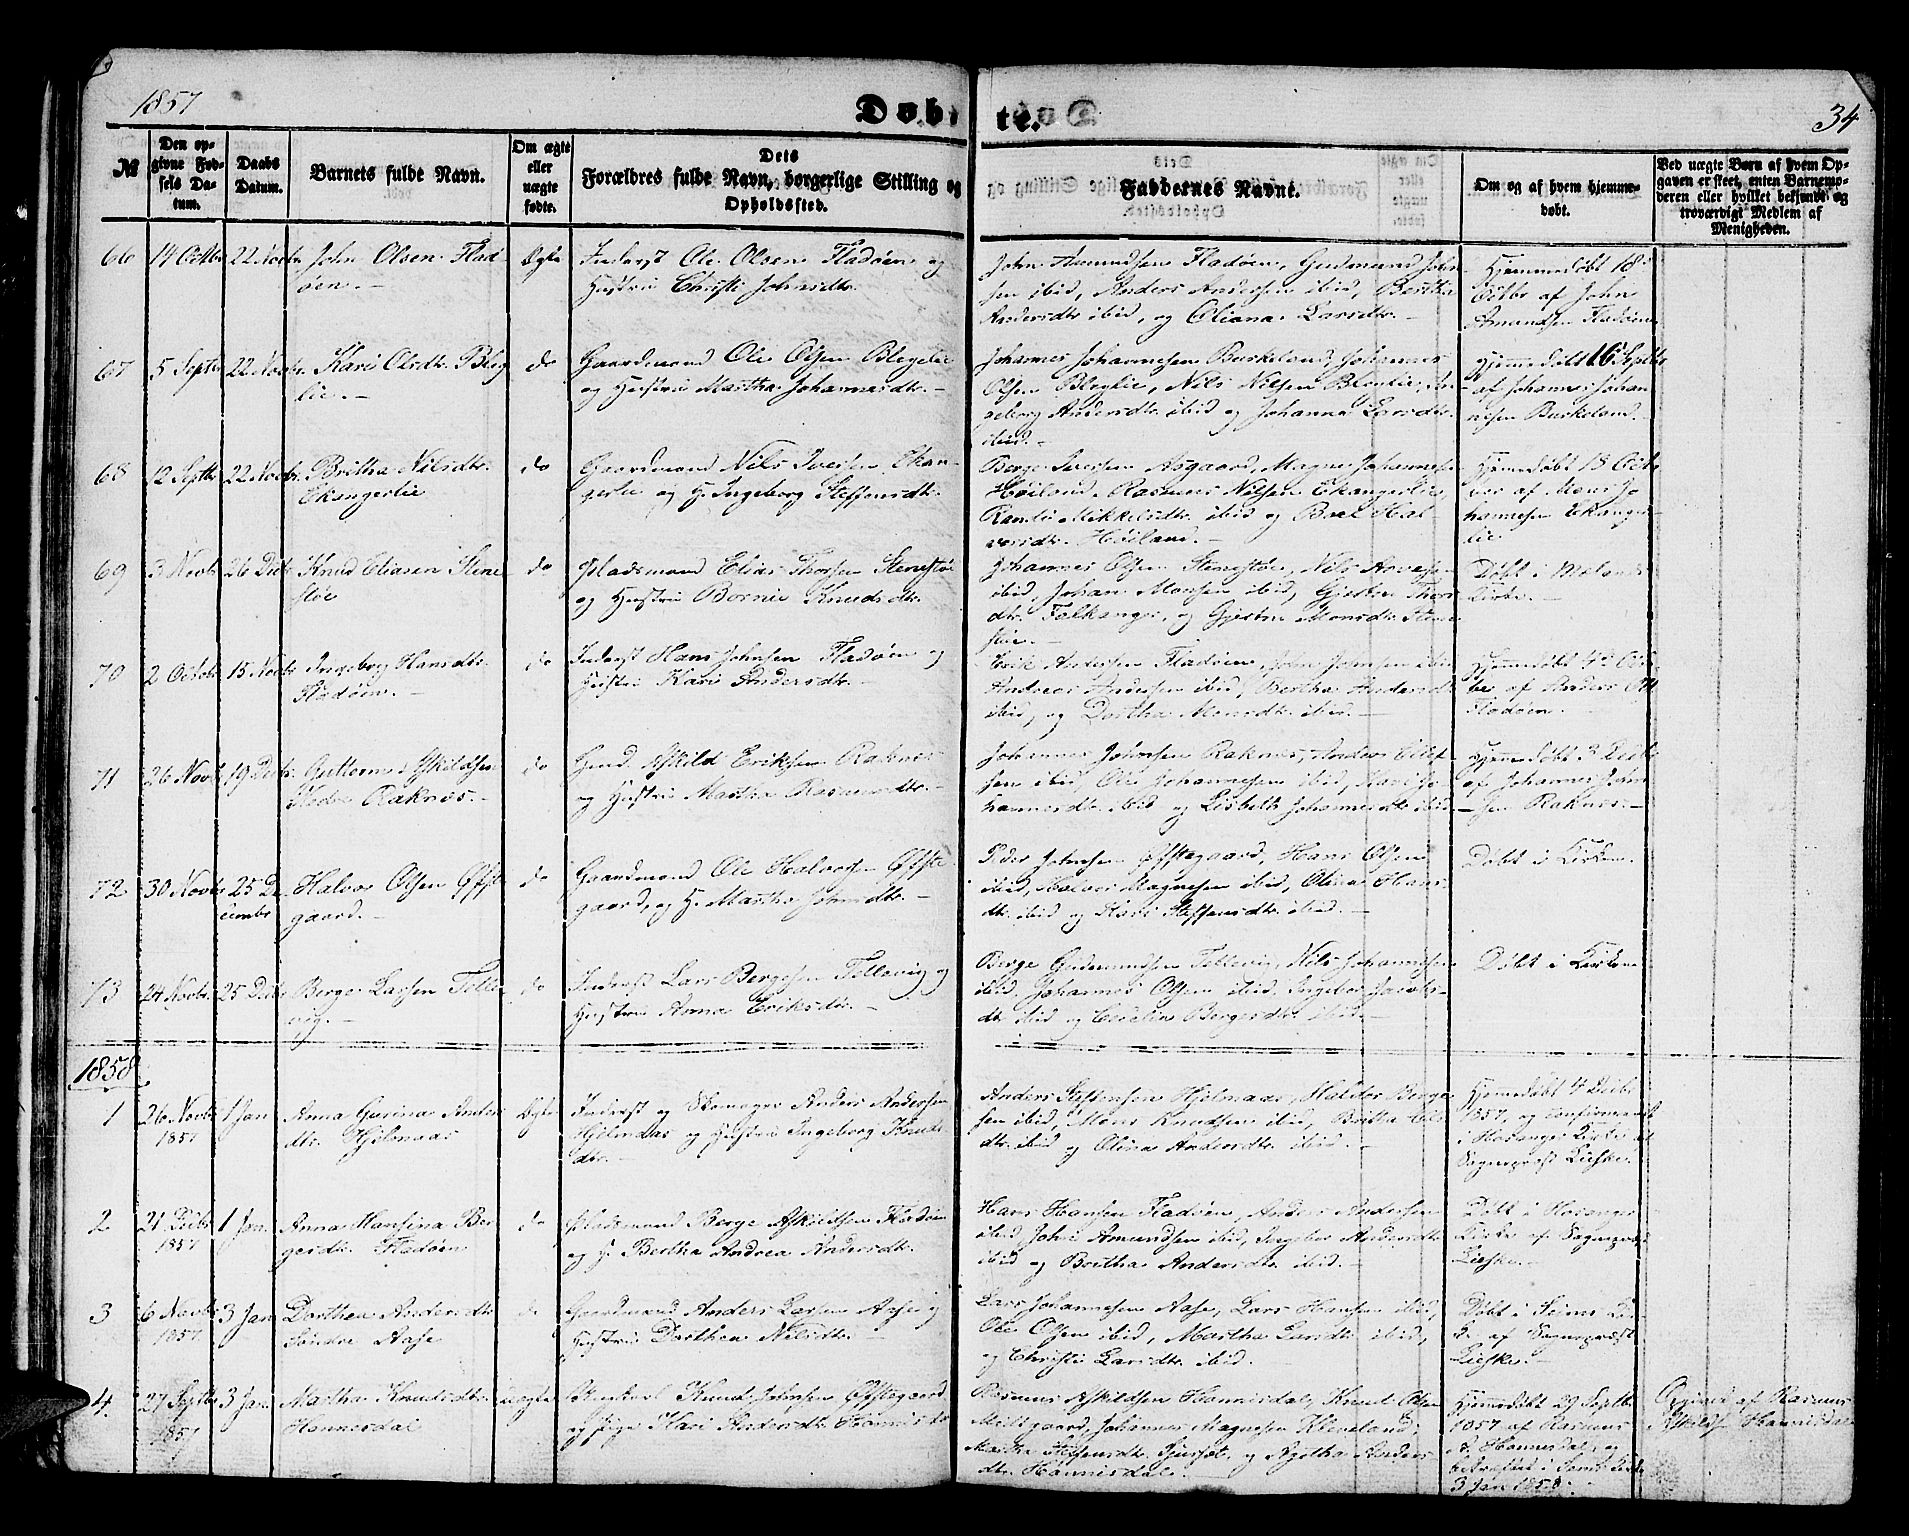 1857
Døbte.
34
№
Den op-
givne Fød-
sels Da-
tum.
Daabs
Datum.
Barnets fulde Navn.
Om ægte
eller
uægte
fødte.
Dets
Forældres fulde Navn, borgerlige Stilling og
Opholdssted.
Faddernes Navne.
Om og af hvem hjemme-
døbt.
Ved uægte Børn af hvem Op-
gaven er skeet, enten Barnemo-
deren eller hvilket bekjendt og
troværdigt Medlem af
Menigheden.
66 14 Octbr 22 Novbr John Olsen Flad-
øen.-
Ægte
Inderst Ole Olsen Fladøen og
Hustru Christi Johnsdtr.
John Amundsen Fladøen, Gudmund John-
sen ibid, Anders Andersen ibid, Bertha
Andersdtr ibid, og Oliana Larsdtr.-
Hjemmedøbt 18
Octbr af John
Amundsen Fladøen
67 5 Septbr 22 Novbr. Kari Olsdtr. Bleg-
lie.-
do
Gaardmand Ole Olsen Bleglie
og Hustru Martha Johannesdtr.-
Johannes Johannesen Burkeland, Johannes
Olsen Bleglie, Nils Nilsen Bleglie, In-
geborg Andersdtr. ibid og Johanna Larsdtr.
ibid.-
Hjemmedøbt 16 Septbr
af Johannes Johan-
nesen Burkeland.
68 12 Septbr 22 Novbr. Britha Nilsdtr.
Ekangerlie
do
Gaardmand Nils Iversen Ekan-
gerlie og H. Ingeborg Steffensdtr.
Berge Iversen Asgaard, Magne Johannesen
Høiland, Rasmus Nilsen Ekangerlie,
Randi Mikkelsdtr. ibid og Boel Hal-
vorsdtr. Høiland.-
Hjemmedøbt 18 Octo-
ber af Mons Jo-
hannesen Ekanger-
lie
69 3 Novbr 26 Decbr Knud Eliasen Stene-
støe
do
Pladsmand Elias Thorsen Stenestøe
og Hustru Bornie Knudsdtr.
Johannes Olsen Stenestøe, Nils
ibid, Johan Monsen ibid, Gjertru Thors-
dtr. Falkanger, og Gjertru Monsdtr. Stene-
støe.-
Døbt i Mælands
Kirke.-
70 2 Octobr 15 Novbr Ingeborg Hansdtr.
Fladøen.-
do
Inderst Hans Johnsen Fladøen og
Hustru Kari Andersdtr.-
Erik Andersen Fladøen, John Johnsen ibid
Andreas Andersen ibid, Bertha Andersdtr.
ibid, og Dorthea Monsdtr. ibid.-
Hjemmedøbt 4 Octo-
ber af Anders
Fladøen.-
71 26 Novbr 19 Decbr. Guttorm Askildsen
Raknes.-
do
Gmd. Askild Eriksen Raknes
og Hustru Martha Rasmusdtr.-
Johannes Johnsen Raknes, Anders
sen ibid, Ole Johannesen ibid, Kari Jo-
hannesdtr. ibid og Lisbeth Johannesdtr. ibid.-
Hjemmedøbt 3 Decbr
af Johannes John-
sen Raknes.-
72 30 Novbr 25 De-
cembr
Halvor Olsen Øfste-
gaard.-
do
Gaardmand Ole Halvorsen Øfste-
gaard, og H. Martha Johnsdtr.-
Peder Johnsen Øfstegaard, Hans Olsen
ibid, Halvor Magnesen ibid, Olina Hans-
dtr. ibid og Kari Steffensdtr. ibid.-
Døbt i Kirken.
73 24 Novbr. 25 Decbr Berge Larsen Telle-
vig.-
do
Inderst Lars Bergesen Tellevig og
Hustru Anna Eriksdtr.-
Berge Gudmundsen Tellevig, Nils Johannesen
ibid, Johannes Olsen ibid, Ingebor Jacobs-
dtr. ibid og Bergesdtr. ibid.-
Døbt i Kirken
1858
1 26 Novbr
1857
1 Jan Anna Gurina Anders-
dtr. Hjelmaas
Ægte
Inderst og Skomager Anders Andersen
Hjelmaas og Hustru Ingeborg Knuds-
dtr.-
Anders Steffensen Hjelmaas, Haldor Berge-
sen ibid, Mons Knudsen ibid, Britha Ols-
dtr. ibid og Olina Andersdtr. ibid.-
Hjemmedøbt 4 Decbr
1857, og confirmeret
i Hosanger Kirke af
Sognepræst Lieske.
2 21 Decbr
1857
1 Jan. Anna Hansina Ber-
gesdtr. Fladøen
do
Pladsmand Berge Askildsen Fladøen
og H. Bertha Andrea Andersdtr.
Hans Hansen Fladøen, Anders Andersen
ibid, John Amundsen ibid, Ingebor Andersdtr.
ibid og Britha Andersdtr. ibid.-
Døbt i Hosanger
Kirke af Sognepræst
Lieske.-
3 6 Novbr
1857
3 Jan Dorthea Andersdtr.
Søndre Aase
do
Gaardmand Anders Larsen Aase og
Hustru Dorthea Nilsdtr.
Lars Johannesen Aase, Lars Hansen ibid,
Ole Olsen ibid, Martha Larsdtr. ibid,
og Christi Larsdtr. ibid.-
Døbt i Seims Kir-
ke af Sognepræst
Lieske.-
4. 27 Septbr
1857
3 Jan Martha Knudsdtr.
Hannisdal
uægte
Ungkarl Knud Johnsen Øfstegaard
og Pige Kari Andersdtr. Hannisdal
Rasmus Askildsen Hannisdal, Knud Olsen
Midtgaard, Johannes Magnesen Kleveland,
Martha Steffensdtr. og Agatha Anders-
dtr. Hannisdal.
Hjemmedøbt 29 Septbr
1857 af Rasmus
A. Hannisdal, og
bekræftet i Seims Kirke
3 Jan 1858.
Opgivet af Rasmus
Askildsen Hannisdal